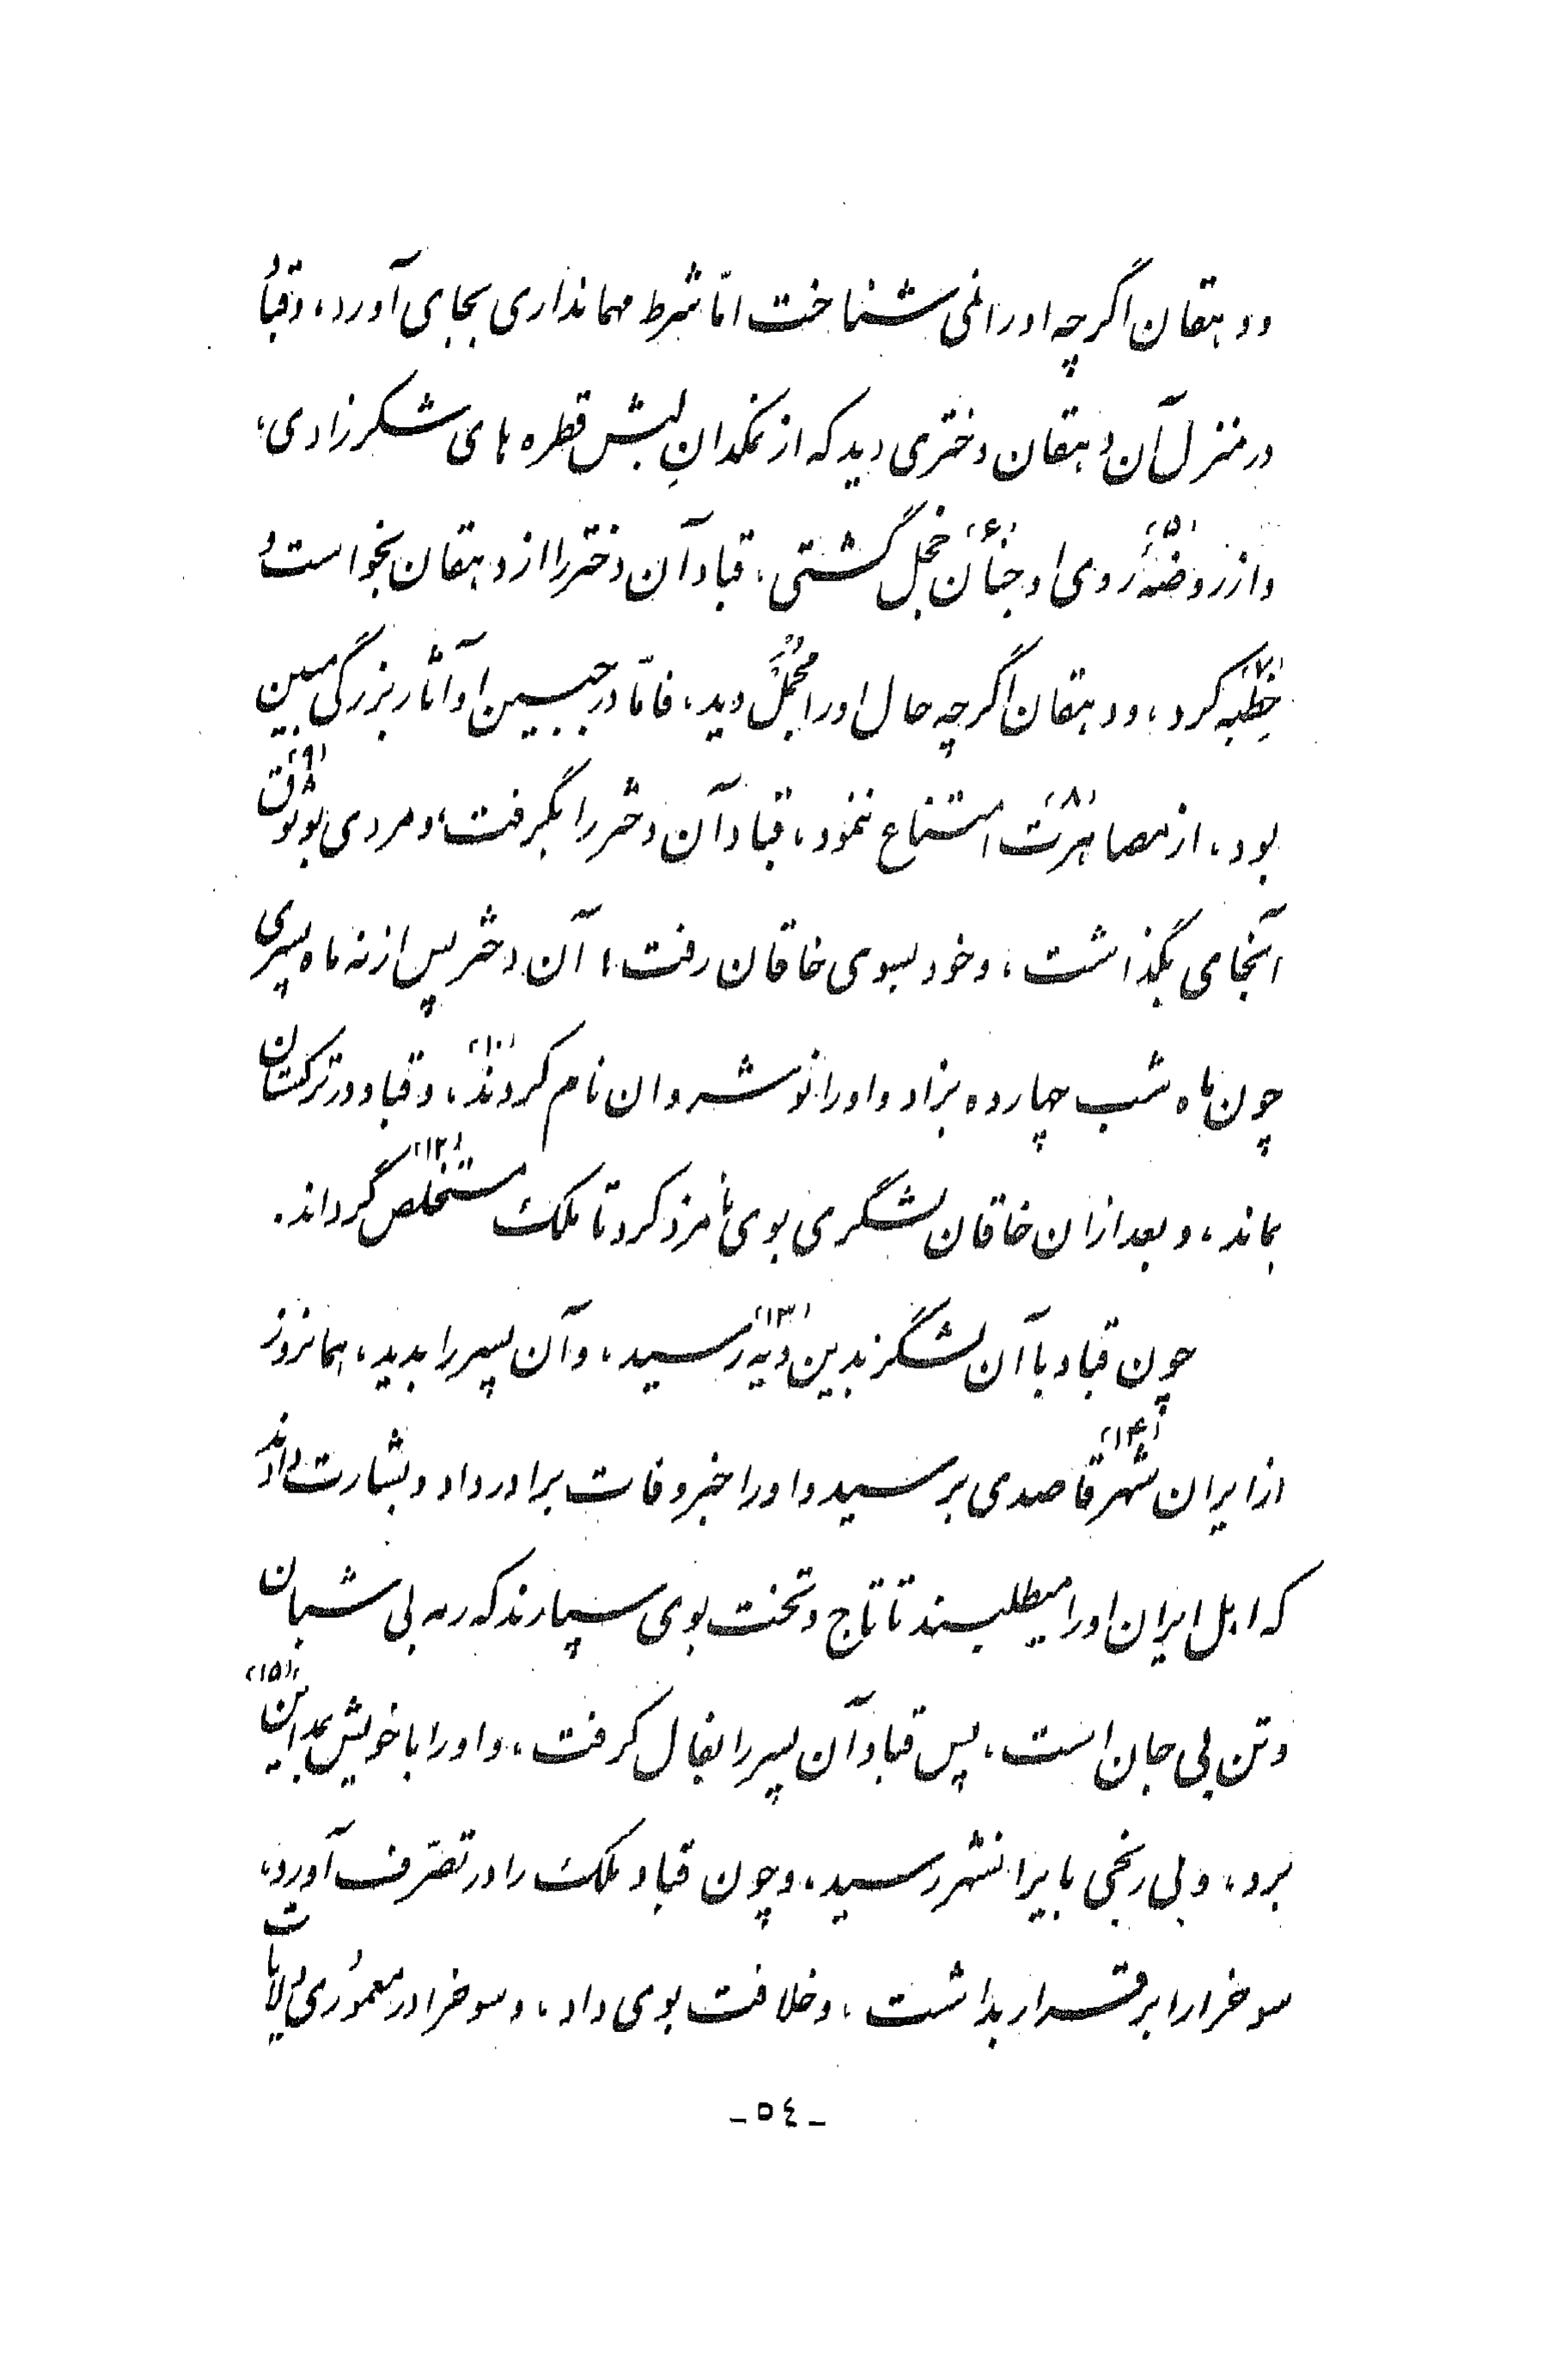 ودهقان اگرچه اورا نمی‌شناخت امّا شرط مهمانداری بجای آورد، وقبادُ
در منزل آن دهقان دختری دید که از نمکدانِ لبش قطره های شکر زادی،
واز روضهٔ (۵) روی او جنان (۶) خجل گشتی، قباد آن دختر را از دهقان بخواست و
خِطْبه (۷) کرد، ودهقان اگرچه حال اورا مجمل دید، فامّا در جبین او آثار بزرگی مبین
بود، از مصاهرت (۸) امتناع ننمود، قباد آن دختر را بگرفت؛ ومردی بوثوق (۹)
آنجای بگذاشت، وخود بسوی خاقان رفت؛ آن دختر پس از نه ماه پسری
چون ماه شب چهارده بزاد واورا نوشروان نام کردند (۱۰)، وقباد در ترکستان
بماند، وبعد ازان خاقان لشگری بوی نامزد کرد تا ملک مستخلص (۱۲) گرداند.
چون قباد با آن لشگر بدین دیه (۱۳) رسید، وآن پسر را بدید، همانروز
از ایران شهر (۱۴) قاصدی برسید واورا خبر وفات برادر داد وبشارت دادند
که اهل ایران اورا میطلبند تا تاج وتخت بوی سپارند که رمه بی شبان
وتن بی جان است، پس قباد آن پسر را بفال گرفت، واورا با خویش بمداین (۱۵)
برد، وبی رنجی بایرانشهر رسید، وچون قباد ملک را در تصرّف آورد،
سوخرا را برقرار بداشت، وخلافت بوی داد، وسوخرا در معموری ولایات
ـ ٥٤ ـ